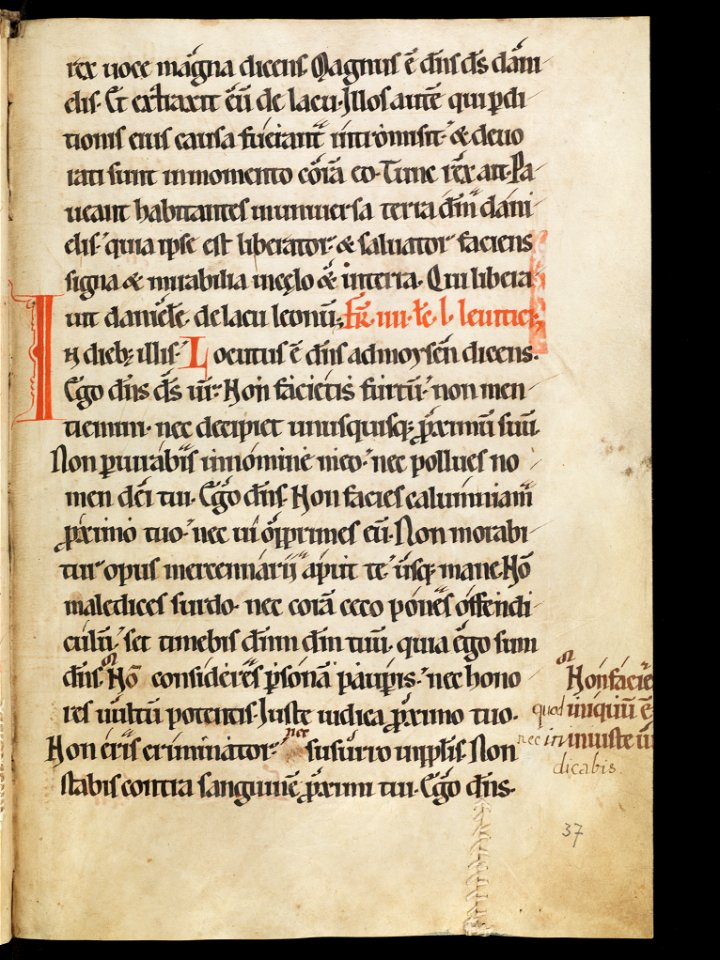 rex uoce magna dicens. Magnus ē dn̄s dś dāni
elis. Et ext̄raxit eū de lacu. Illos autē qui ꝑdi
tionis eius causa fuerant intromisit. & deuo
rati sunt in momento corā eo. Tunc rex ait. Pa
ueant habitantes in uniuersa terra dm̄ dani
elis. quia ipse est liberator. & saluator faciens
signa & mirabilia in cęlo & in terra. Qui libera
uit danielē. de lacu leonū. Fr̄. iiii. le. l. leuitici.
In dieb; illis. Locutus ē dn̄s ad moysen dicens.
Ego dn̄s dś ur̄. Non facietis furtū. non men
tiemini. nec decipiet unusquisq; ꝓximū suū.
Non ꝑiurabis in nomine meo. nec pollues no
men dei tui. Ego dn̄s. Non facies calumniam
ꝓximo tuo. nec ui opprimes eū. Non morabi
tur opus mercennarii apud te usq; mane. Nō
maledices surdo. nec corā ceco pones offendi
culū. set timebis dn̄m dm̄ tuū. quia ego sum
dn̄s. Nō consideres ꝑsonā pauꝑis. nec hono
res uultū potentis. Iuste iudica ꝓximo tuo.
Non eris criminator. nec susurro in pp̄lis. Non
stabis contra sanguinē ꝓximi tui. Ego dn̄s.
Non facie
quod iniquū ē
nec in iniuste iu
dicabis.
37